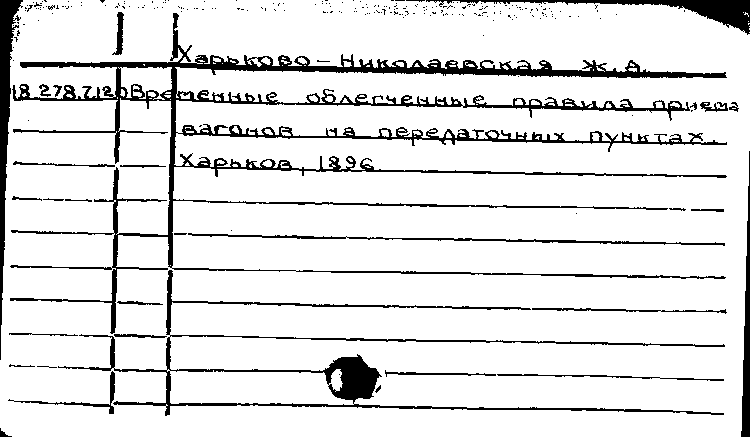 Харьково-Николаевская ж.д.
18.278.7.120 Временные облегченные правила приема
вагонов на передаточных пунктах.
Харьков, 1896